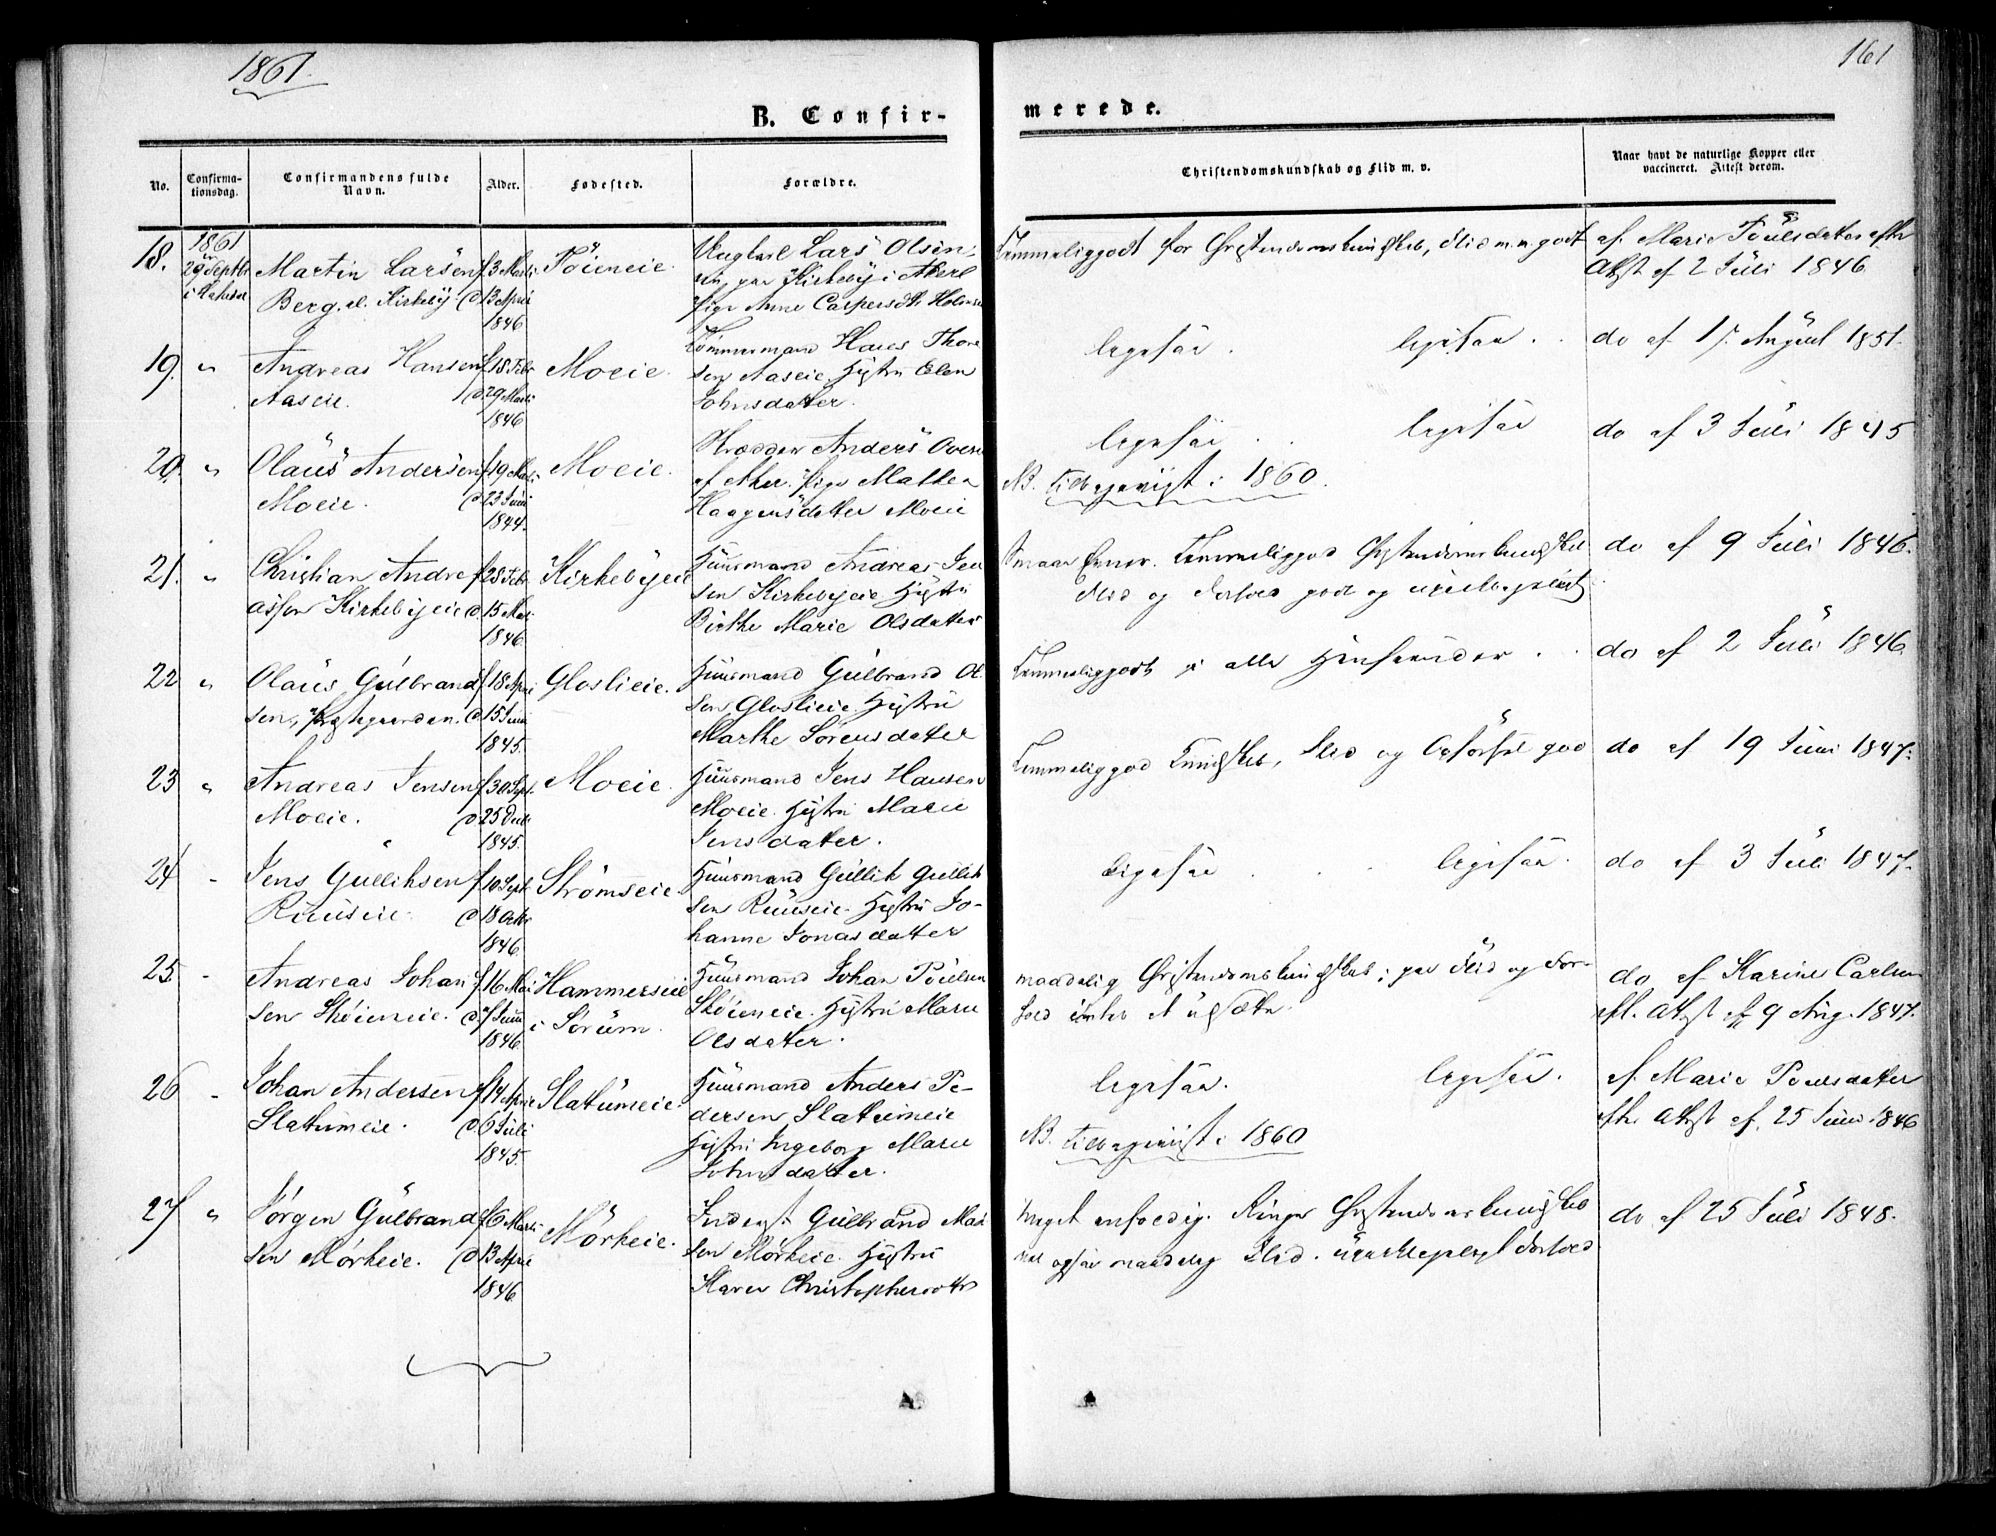 1861.
161
B. Confir-
merede.
No.
Confirma-
tionsdag.
Confirmandens fulde
Navn.
Alder.
Fødested.
Forældre.
Christendomskundskab og Flid m. v.
Naar havt de naturlige Kopper eller
vaccineret. Attest derom.
18.
1861
29 Septbr
Martin Larsen
Berg. el. Kirkeby
f 3 Marti
d 13 April
1846
Tøieneie.
Ungkarl Lars Olsen,
Kirkeby i Aker
Pige Anne Caspersdtr
Temmeliggodt for Christendomskundskab, Flid m. m. godt
af Marie Poulsdatter efter
Attst af 2 Juli 1846
19.
"
Andreas Hansen
Aaseie.
f 18 Febr
d 29 Marti
1846
Moeie.
Tømmermand Hans Thore
sen Aaseie, Hustru Elen
Johnsdatter.
ligesaa.
ligesaa.
do af 1. August 1851.
20.
"
Olaus Andersen
Moeie.
f 19 Marti
d 23 Juni
1844.
Moeie.
Skrædder Anders
af Aker. Pige Mathea
Haagensdatter Moeie
ligesaa
ligesaa
do af 3 Juli 1845
NB. tilbageviist i 1860.
21.
"
Christian Andre
assen Kirkebyeie
f 28 Febr.
d. 15 Mai
1846
Kirkebyeie
Huusmand Andreas Jen
sen Kirkebyeie Hustru
Birthe Marie Olsdatter
Smaae Evner. Temmeliggod Christendomskundskab
Flid og Forhold godt og
do af 9 Juli 1846.
22
"
Olaus Gulbrand
sen, Præstegaarden.
f 18 April
d 15 Juni
1845.
Gloslieie.
Huusmand Gulbrand Ol
sen, Gloslieie. Hustru
Marthe Sørensdatter
Temmeliggodt i alle Henseender.
do af 2 Juli 1846
23
"
Andreas Jensen
Moeie.
f 30 Sept.
d 25 Decb
1845.
Moeie.
Huusmand Jens Hansen
Moeie. Hustru Marie
Jensdatter.
Temmeliggod Kundskab, Flid og Opførsel god
do af 19 Juni 1847.
24
"
Jens Gulliksen
Ruuseie.
f 10 Sept.
d 18 Octbr
1846.
Strømseie.
Huusmand Gullik Gullik
sen Ruuseie. Hustru Jo-
hanne Jonasdatter
Ligesaa
ligesaa.
do af 3 Juli 1847.
25.
"
Andreas Johan
sen Skøieneie.
f 16 Mai
d. 7 Juni
1846
Hammerseie
i Sørum.
Huusmand Johan Poulsen
Skøieneie. Hustru Marie
Olsdatter.
maadelig Christendomskundskab; god Flid og For-
hold
do af Karine Carlsen
eft. Attst af 9 Aug. 1847.
26
"
Johan Andersen
Slatumeie.
f 14 April
d. 6 Juli
1845.
Slatumeie.
Huusmand Anders Pe-
dersen Slatumeie
Hustru Ingeborg Marie
Johnsdatter.
ligesaa.
ligesaa.
af Marie Poulsdatter
efter Attst af. 25 Juni 1846
NB. tilbageviist i 1860
27
"
Jørgen Gulbrand
sen Mørkeie.
f 6 Marti
d 13 April
1846
Mørkeie.
Inderst Gulbrand Mad
sen Mørkeie. Hustru
Karen Christophersdtr
meget enfoldig. Ringe Christendomskundskab
ogsaa maadelig Flid. Forhold
do af 25 Juli 1848.